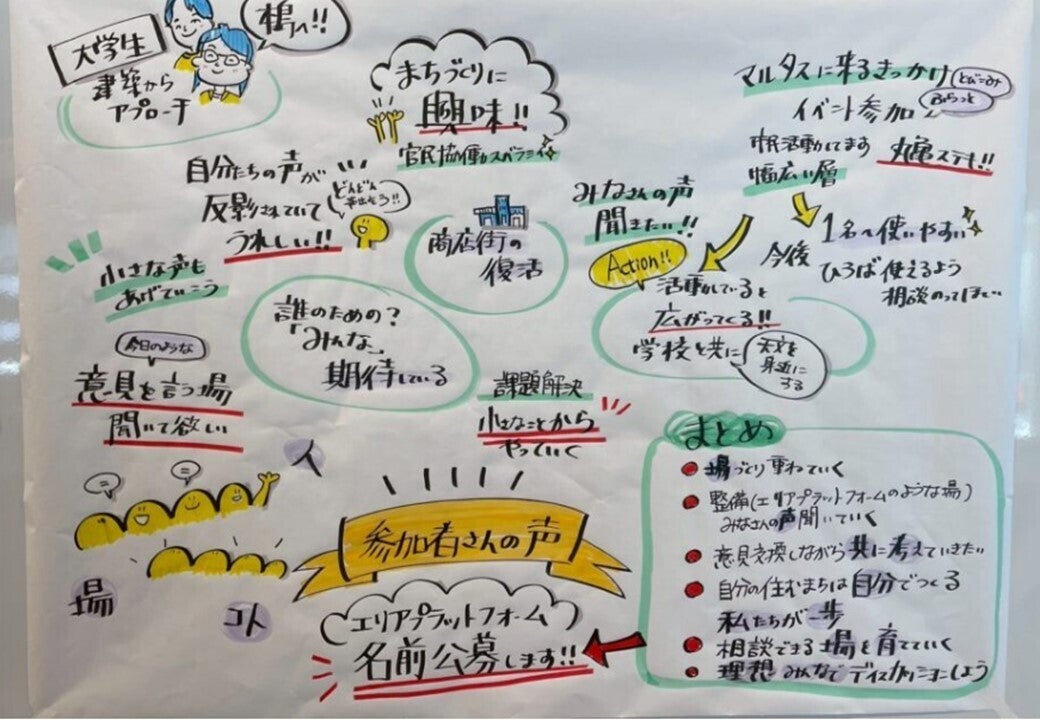 大学生
建築から
アプローチ
まちづくりに
興味!!
官民協働がスバラシイ
マルタスに来るきっかけ
とびこみ
イベント参加
ふらっと
市民活動してます
丸亀ステキ!!
幅広い層
自分たちの声が
反影されていて
どんどん
うれしい!!
小さな声も
あげていこう
商店街の
復活
みなさんの声
聞きたい!!
Action!!
活動していると
広がってくる!!
学校と共に
天文を
身近に
する
今後
1名〜使いやすい
ひろば使えるよう
相談のってほしい
誰のための?
「みんな」
期待している
今日のような
意見を言う場
開いて欲しい
課題解決
小さなことから
やっていく
人
場
コト
参加者さんの声
エリアプラットフォーム
名前公募します!!
まとめ
場づくり重ねていく
整備(エリアプラットフォームのような場)
みなさんの声聞いていく
意見交換しながら共に考えていきたい
自分の住むまちは自分でつくる
私たちが一歩
相談できる場を育てていく
理想 みんなでディスカッションしよう